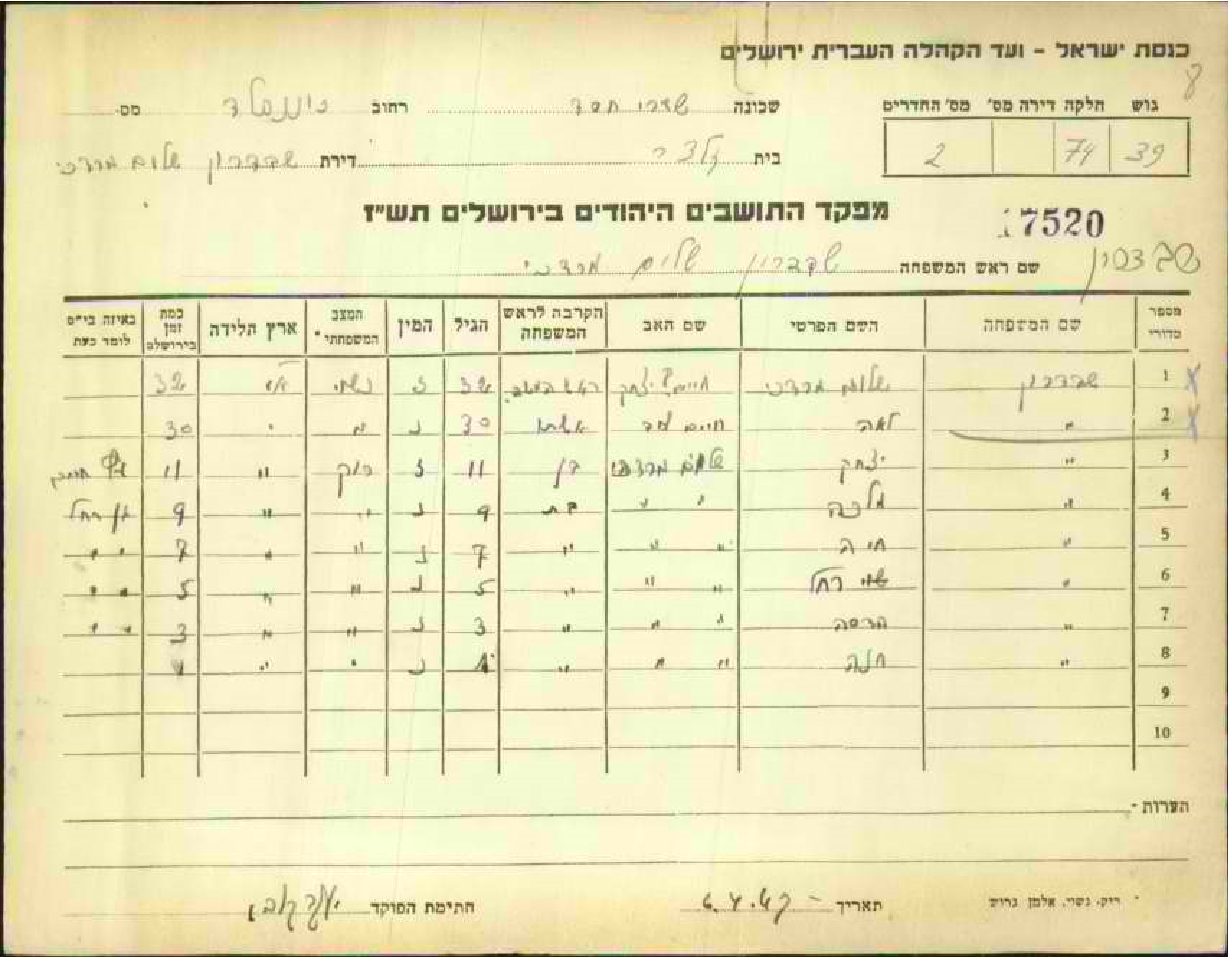 כנסת ישראל - ועד הקהלה העברית ירושלים
8
גוש חלקה דירה מס' מס' החדרים
39 74 2
שכונה שערי חסד רחוב מס.
בית דירת שבדרון שלום מרדכי
מפקד התושבים היהודים בירושלים תש"ז
7520
שם ראש המשפחה שבדרון שלום מרדכי
מספר סדורי שם המשפחה השם הפרטי שם האב הקרבה לראש המשפחה הגיל המין המצב המשפחתי* ארץ הלידה כמה זמן בירושלים באיזה בי"ס לומד כעת
1 שבדרון שלום מרדכי יצחק ראש המשפ. 32 ז נשוי א"י 32
2 " לאה חיים אשתו 30 נ " " 30
3 " יצחק שלום מרדכי בן 11 ז רוק " 11
4 " מלכה " " בת 9 נ " " 9
5 " חיה " " " 7 נ " " 7 " "
6 " רחל " " " 5 נ " " 5 " "
7 " הדסה " " " 3 נ " " 3 " "
8 " חנה " " " נ " "
9
10
הערות -
תאריך חתימת הפוקד